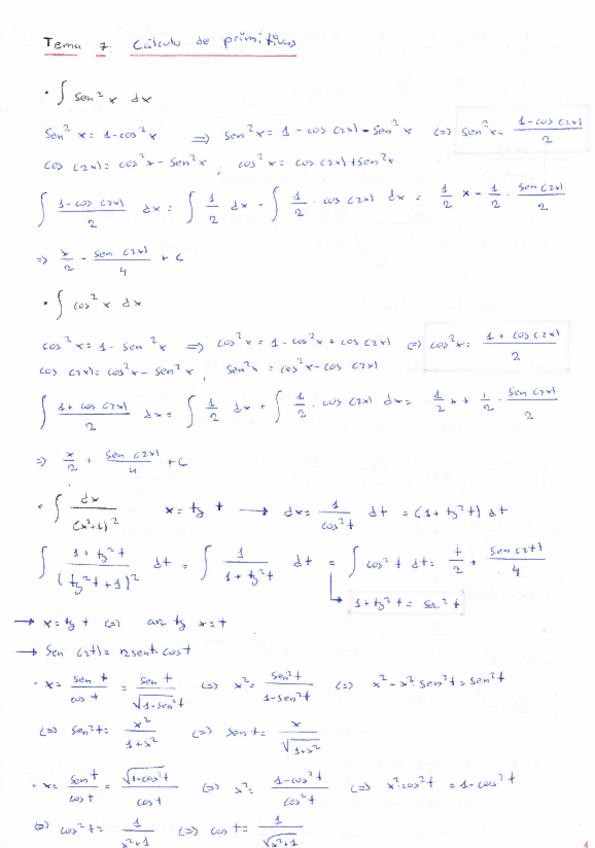 Tema 7 Cálculo de primitivas
· ∫ sen²x dx
sen²x = 1-cos²x ⇒ sen²x = 1 - cos(2x) - sen²x ⇔ sen²x = (1-cos(2x))/2
cos(2x) = cos²x - sen²x, cos²x = cos(2x) + sen²x
∫ (1-cos(2x))/2 dx = ∫ 1/2 dx - ∫ 1/2 · cos(2x) dx = 1/2 x - 1/2 · sen(2x)/2
⇒ x/2 - sen(2x)/4 + C
· ∫ cos²x dx
cos²x = 1 - sen²x ⇒ cos²x = 1 - cos²x + cos(2x) ⇔ cos²x = (1 + cos(2x))/2
cos(2x) = cos²x - sen²x, sen²x = cos²x - cos(2x)
∫ (1 + cos(2x))/2 dx = ∫ 1/2 dx + ∫ 1/2 · cos(2x) dx = 1/2 x + 1/2 · sen(2x)/2
⇒ x/2 + sen(2x)/4 + C
· ∫ dx/(x²+1)² x = tg t → dx = 1/cos²t dt = (1 + tg²t) dt
∫ (1 + tg²t)/(tg²t + 1)² dt = ∫ 1/(1 + tg²t) dt = ∫ cos²t dt = t/2 + sen(2t)/4
↳ 1 + tg²t = sec²t
→ x = tg t ⇔ arc tg x = t
→ sen(2t) = 2sent·cost
· x = sen t/cos t = sen t/√(1-sen²t) ⇔ x² = sen²t/(1-sen²t) ⇔ x² - x²·sen²t = sen²t
⇔ sen²t = x²/(1+x²) ⇔ sen t = x/√(1+x²)
· x = sen t/cos t = √(1-cos²t)/cos t ⇔ x² = (1-cos²t)/cos²t ⇔ x²·cos²t = 1-cos²t
⇔ cos²t = 1/(x²+1) ⇔ cos t = 1/√(x²+1)
1